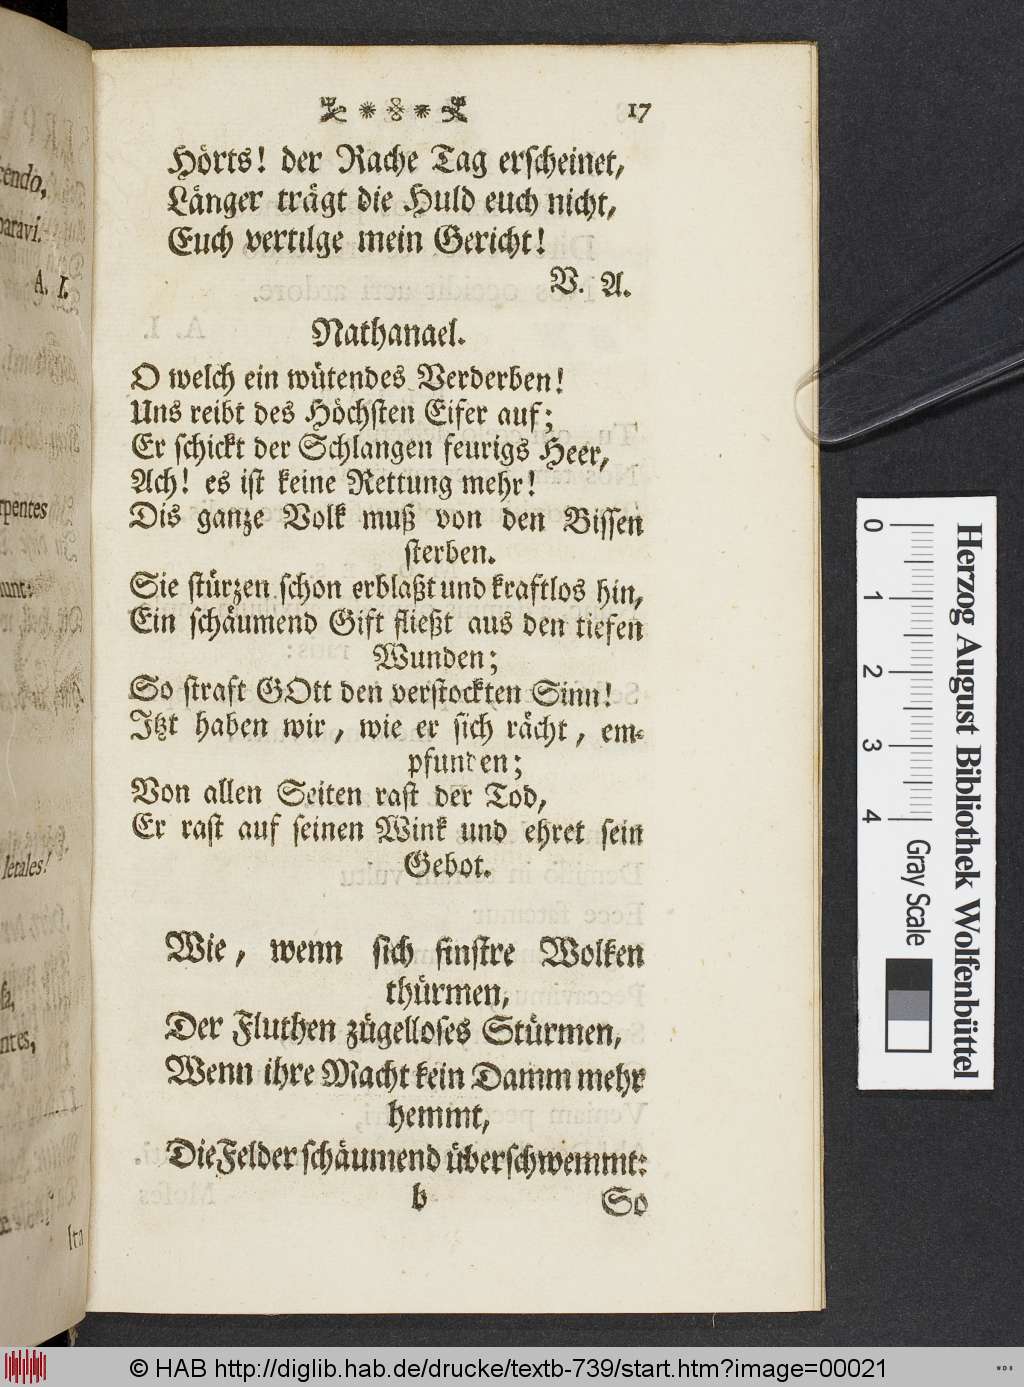 rendo,
paravi.
A. I.
rpentes
unt:
letales!
ntes,
Ita
17
Hörts! der Rache Tag erscheinet,
Länger trägt die Huld euch nicht,
Euch vertilge mein Gericht!
V. A.
Nathanael.
O welch ein wütendes Verderben!
Uns reibt des Höchsten Eifer auf;
Er schickt der Schlangen feurigs Heer,
Ach! es ist keine Rettung mehr!
Dis ganze Volk muß von den Bissen
sterben.
Sie stürzen schon erblaßt und kraftlos hin,
Ein schäumend Gift fließt aus den tiefen
Wunden;
So straft GOtt den verstockten Sinn!
Itzt haben wir, wie er sich rächt, em-
pfunden;
Von allen Seiten rast der Tod,
Er rast auf seinen Wink und ehret sein
Gebot.
Wie, wenn sich finstre Wolken
thürmen,
Der Fluthen zügelloses Stürmen,
Wenn ihre Macht kein Damm mehr
hemmt,
Die Felder schäumend überschwemmt:
b So
Herzog August Bibliothek Wolfenbüttel
0 1 2 3 4 Gray Scale
© HAB http://diglib.hab.de/drucke/textb-739/start.htm?image=00021